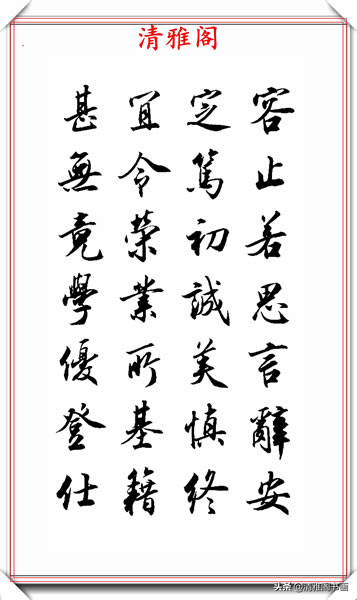 清雅阁
容止若思言辭安
定篤初誠美慎終
宜令榮業所基籍
甚無竟學優登仕
头条@清雅阁书画